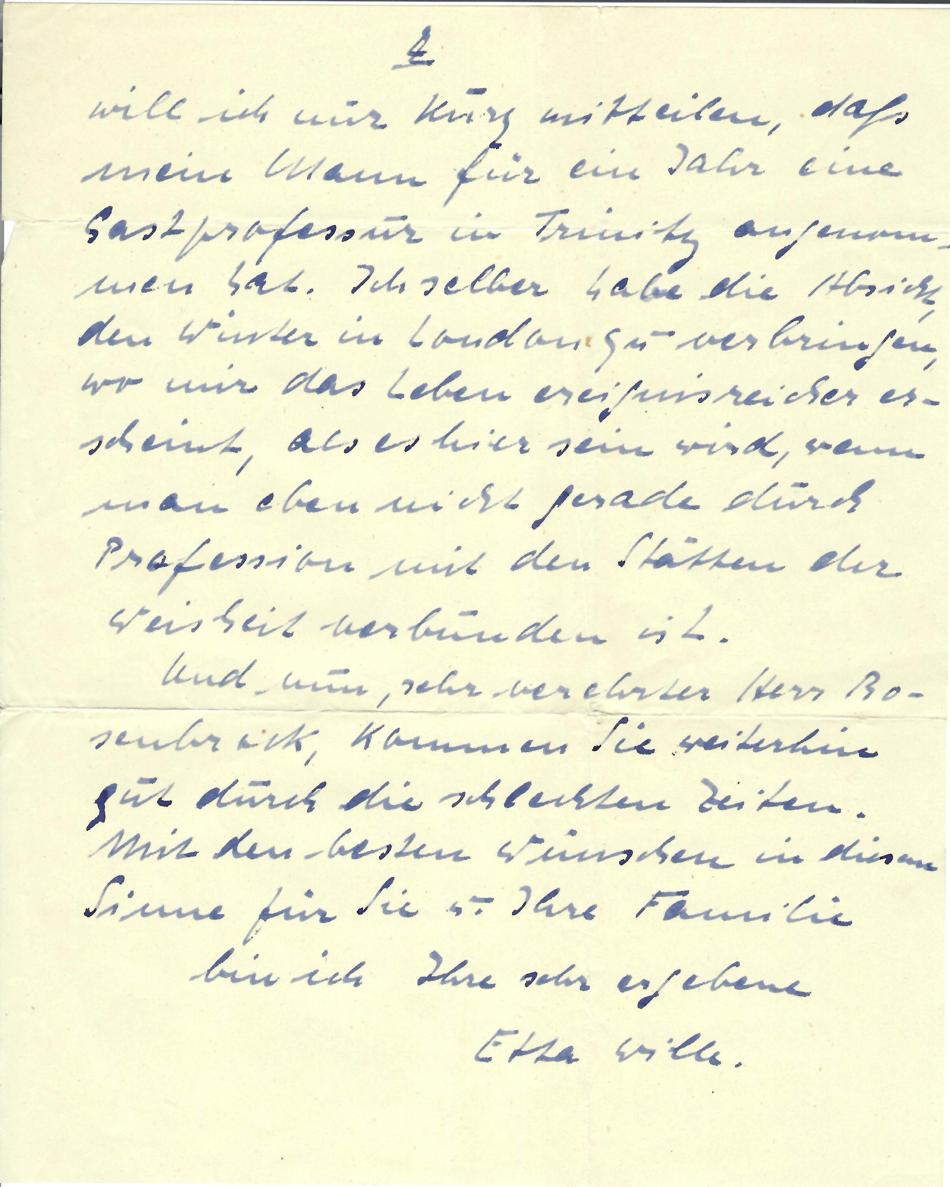 4
will ich nur kurz mitteilen, daß
mein Mann für ein Jahr eine
Gastprofessur in Trinity angenom-
men hat. Ich selber habe die Absicht,
den Winter in London zu verbringen,
wo mir das Leben ereignisreicher er-
scheint, als es hier sein wird, wenn
man eben nicht gerade durch
Profession mit den Stätten der
Weisheit verbunden ist.
Und nun, sehr verehrter Herr Ro-
senbrock, kommen Sie weiterhin
gut durch die schlechten Zeiten.
Mit den besten Wünschen in diesem
Sinne für Sie u. Ihre Familie
bin ich Ihre sehr ergebene
Etta Wille.